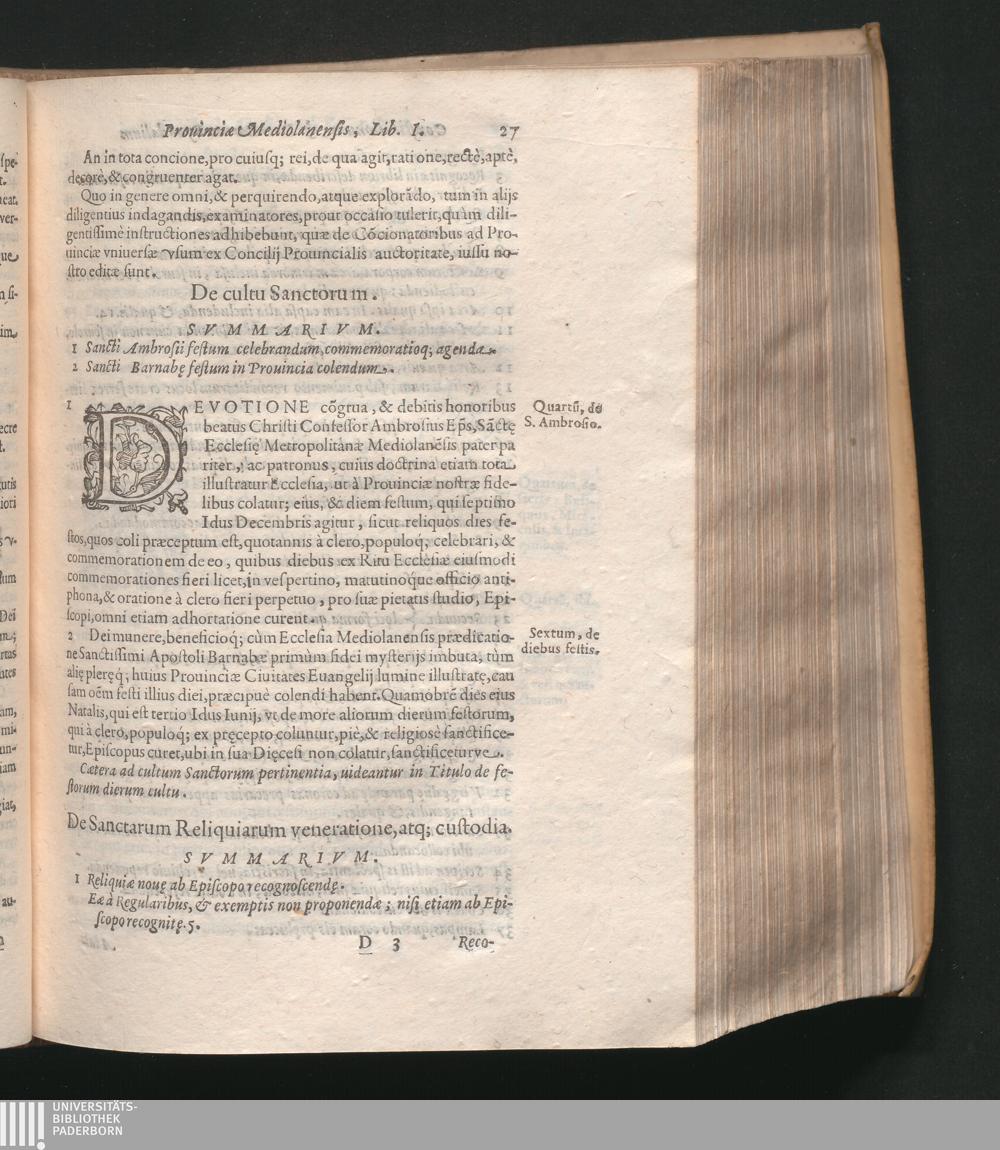 Prouinciæ Mediolanensis, Lib. I. 27
An in tota concione, pro cuiusq; rei, de qua agit, rati one, rectè, aptè,
decorè, & congruenter agat.
Quo in genere omni, & perquirendo, atque explorādo, tum in alijs
diligentius indagandis, examinatores, prout occasio tulerit, quàm dili-
gentissimè instructiones adhibebunt, quæ de Cōcionatoribus ad Pro-
uinciæ vniuersæ vsum ex Concilij Prouincialis auctoritate, iussu no-
stro editæ sunt.
De cultu Sanctorum.
SVMMARIVM.
1 Sancti Ambrosii festum celebrandum, commemoratioq; agenda.
2 Sancti Barnabę festum in Prouincia colendum.
1 DEVOTIONE cōgrua, & debitis honoribus
Quartū, de
S. Ambrosio.
beatus Christi Confessor Ambrosius Ep̄s, Sāctę
Ecclesię Metropolitanæ Mediolanēsis pater pa
riter, ac patronus, cuius doctrina etiam tota
illustratur Ecclesia, ut à Prouinciæ nostræ fide-
libus colatur; eius, & diem festum, qui septimo
Idus Decembris agitur, sicut reliquos dies fe-
stos, quos coli præceptum est, quotannis à clero, populoq; celebrari, &
commemorationem de eo, quibus diebus ex Ritu Ecclesiæ eiusmodi
commemorationes fieri licet, in vespertino, matutinoque officio anti-
phona, & oratione à clero fieri perpetuo, pro suæ pietatis studio, Epi-
scopi, omni etiam adhortatione curent.
2 Dei munere, beneficioq; cùm Ecclesia Mediolanensis prædicatio-
Sextum, de
diebus festis.
ne Sanctissimi Apostoli Barnabæ primùm fidei mysterijs imbuta, tùm
alię pleręq; huius Prouinciæ Ciuitates Euangelij lumine illustratę, cau
sam oēm festi illius diei, præcipuè colendi habent. Quamobrē dies eius
Natalis, qui est tertio Idus Iunij, vt de more aliorum dierum festorum,
qui à clero, populoq; ex pręcepto coluntur, piè, & religiosè sanctifice-
tur, Episcopus curet, ubi in sua Dięcesi non colatur, sanctificeturve.
Cætera ad cultum Sanctorum pertinentia, uideantur in Titulo de fe-
storum dierum cultu.
De Sanctarum Reliquiarum veneratione, atq; custodia.
SVMMARIVM.
1 Reliquiæ nouę ab Episcopo recognoscendę.
Eæ à Regularibus, & exemptis non proponendæ; nisi etiam ab Epi-
scopo recognitę. 5.
D 3 Reco-
UNIVERSITÄTS-
BIBLIOTHEK
PADERBORN